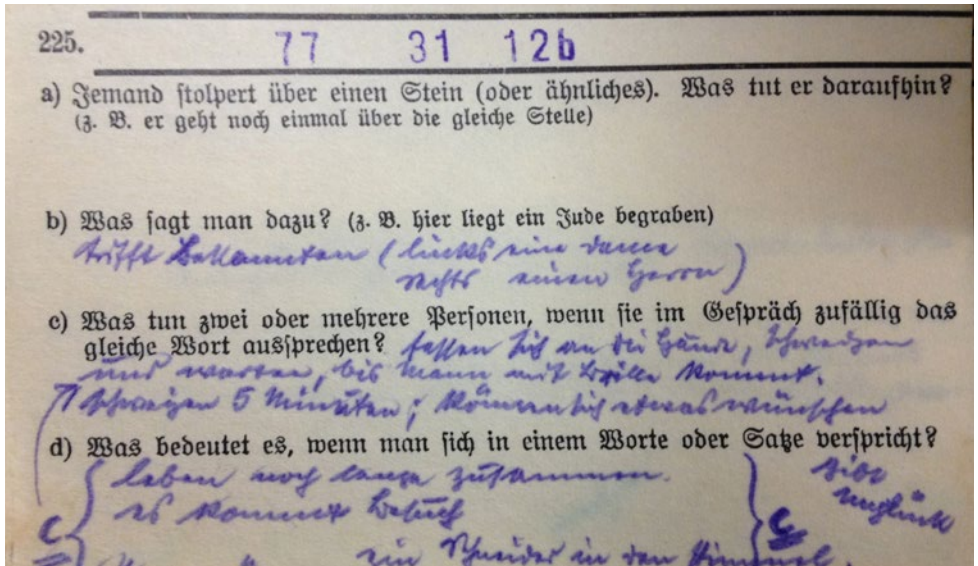 225. 77 31 12b
a) Jemand stolpert über einen Stein (oder ähnliches). Was tut er daraufhin?
(z. B. er geht noch einmal über die gleiche Stelle)
b) Was sagt man dazu? (z. B. hier liegt ein Jude begraben)
trifft Bekannten (links eine Dame
rechts einen Herrn)
c) Was tun zwei oder mehrere Personen, wenn sie im Gespräch zufällig das
gleiche Wort aussprechen? fassen sich an die Hände, schweigen
und warten, bis Mann mit Brille kommt.
schweigen 5 Minuten; können sich etwas wünschen
d) Was bedeutet es, wenn man sich in einem Worte oder Satze verspricht?
leben noch lange zusammen.
gibt
es kommt Besuch
Unglück
c
c
ein Schneider in den Himmel.